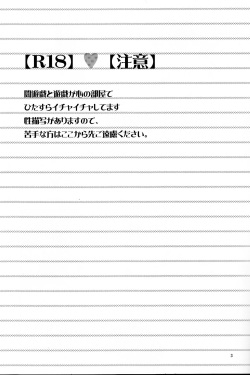 【R18】♥【注意】
闇遊戯と遊戯が心の部屋で
ひたすらイチャイチャしてます
性描写がありますので、
苦手な方はここから先ご遠慮ください。
3